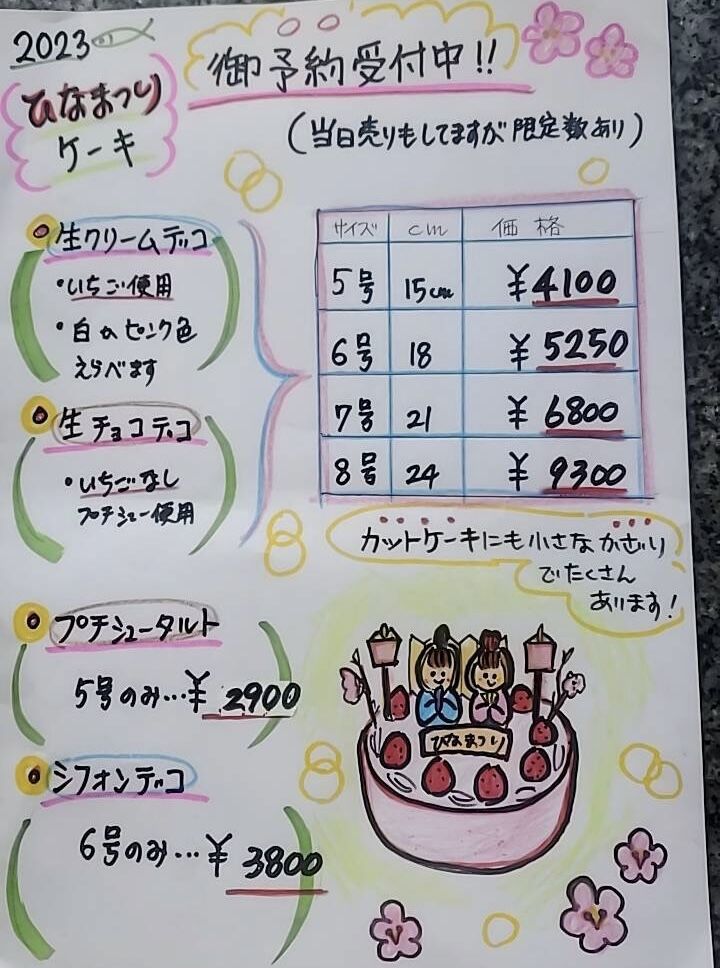 2023
ひなまつり
ケーキ
御予約受付中!!
(当日売りもしてますが限定数あり)
生クリームデコ
・いちご使用
・白 or ピンク色
えらべます
生チョコデコ
・いちごなし
プチシュー使用
サイズ cm 価格
5号 15cm ¥4100
6号 18 ¥5250
7号 21 ¥6800
8号 24 ¥9300
カットケーキにも小さなかざり
でたくさん
あります!
プチシュータルト
5号のみ…¥2900
シフォンデコ
6号のみ…¥3800
ひなまつり